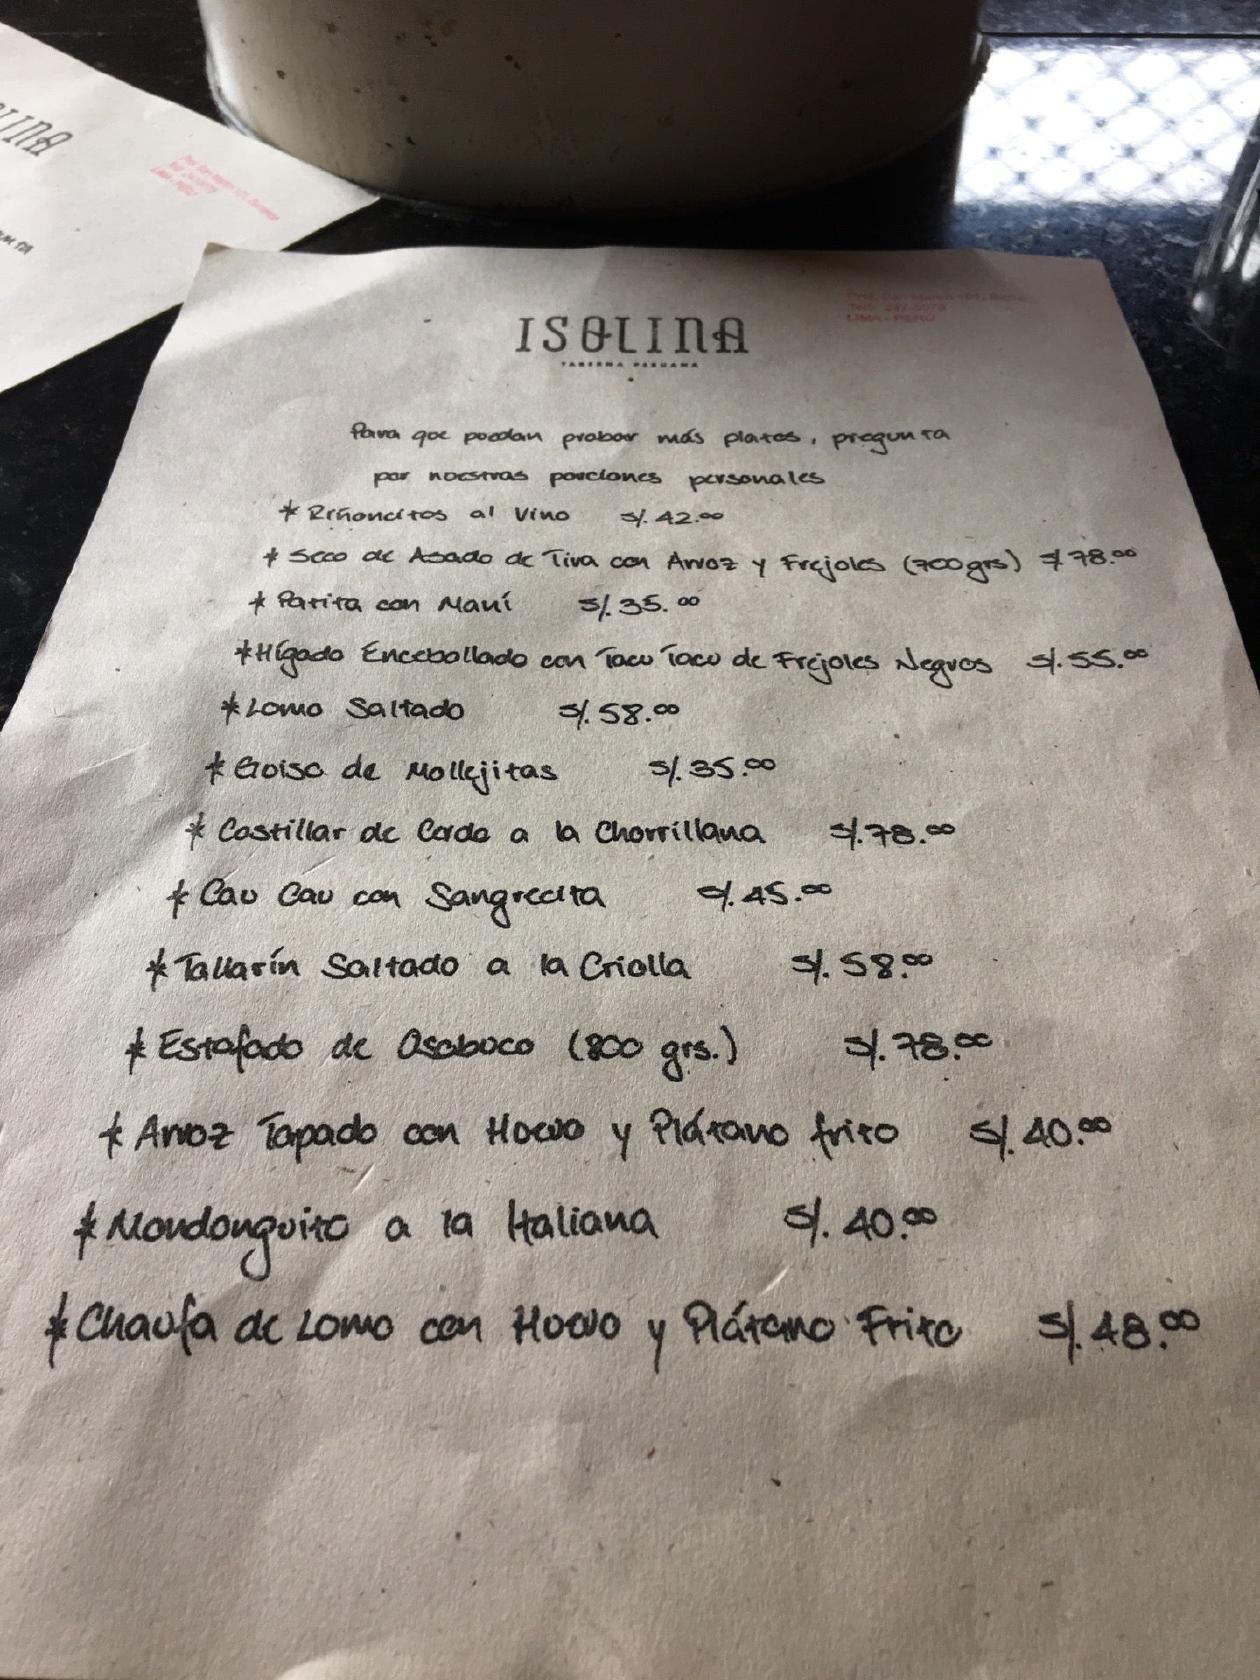 ISOLINA
TABERNA PERUANA
LIMA - PERU
Para que puedan probar más platos, pregunta
por nuestras porciones personales
* Riñoncitos al Vino S/. 42.00
* Seco de Asado de Tira con Arroz y Frejoles (700grs) S/. 78.00
* Patita con Maní S/. 35.00
* Hígado Encebollado con Tacu Tacu de Frejoles Negros S/. 55.00
* Lomo Saltado S/. 58.00
* Guiso de Mollejitas S/. 35.00
* Costillar de Cerdo a la Chorrillana S/. 78.00
* Cau Cau con Sangrecita S/. 45.00
* Tallarín Saltado a la Criolla S/. 58.00
* Estofado de Osobuco (800 grs.) S/. 78.00
* Arroz Tapado con Huevo y Plátano frito S/. 40.00
* Mondonguito a la Italiana S/. 40.00
* Chaufa de Lomo con Huevo y Plátano Frito S/. 48.00